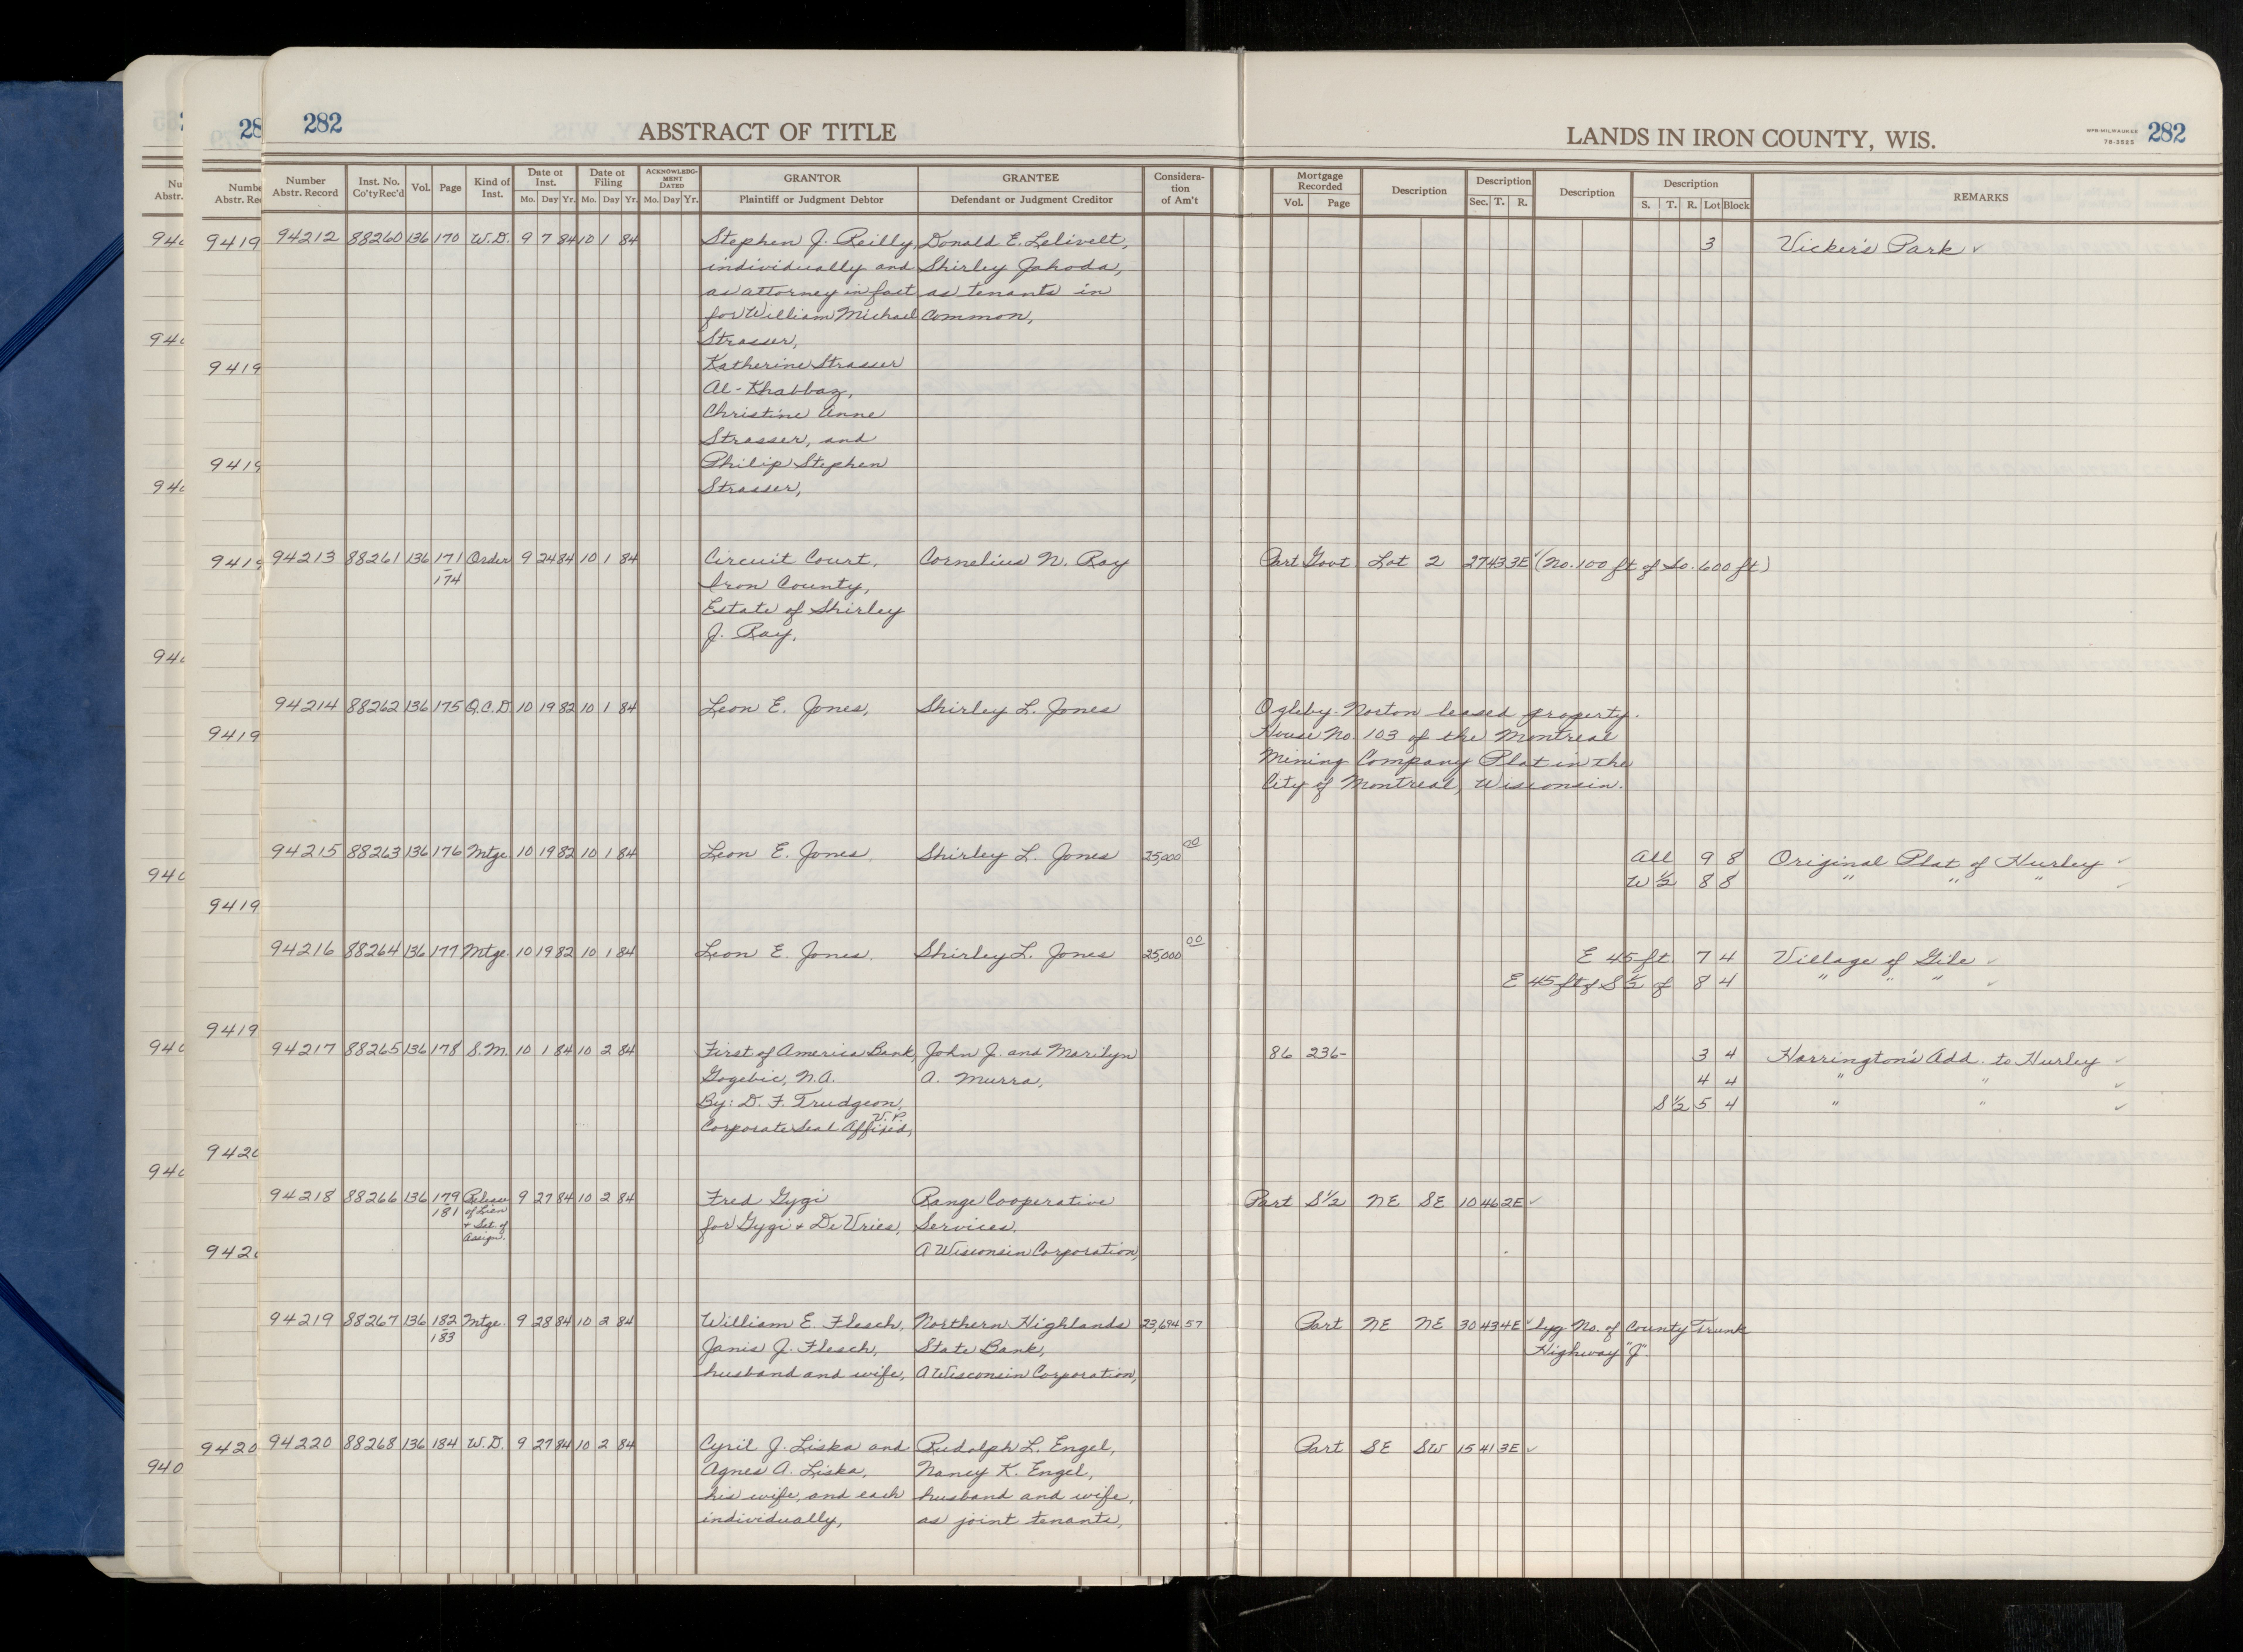 282
ABSTRACT OF TITLE
LANDS IN IRON COUNTY, WIS.
WPB-MILWAUKEE
78-3525
282
Number Abstr. Record
Inst. No. Co'ty Rec'd
Vol.
Page
Kind of Inst.
Date of Inst.
Mo. Day Yr.
Date of Filing
Mo. Day Yr.
ACKNOWLEDG-MENT DATED
Mo. Day Yr.
GRANTOR
Plaintiff or Judgment Debtor
GRANTEE
Defendant or Judgment Creditor
Considera-tion of Am't
Mortgage Recorded
Vol. Page
Description
Description
Sec. T. R.
Description
Description
S. T. R. Lot Block
REMARKS
94212 88260 136 170 W.D. 9 7 84 10 1 84 Stephen J. Reilly, Donald E. Lelivelt, 3 Vicker's Park ✓
individually and Shirley Jahoda,
as attorney in fact as tenants in
for William Michael Common,
Strasser,
Katherine Strasser
Al-Khabbaz,
Christine Anne
Strasser, and
Philip Stephen
Strasser,
94213 88261 136 171 Order 9 24 84 10 1 84 Circuit Court, Cornelius N. Ray Part Govt. Lot 2 27 43 3E ✓ (No. 100 ft of So. 600 ft)
– 174 Iron County,
Estate of Shirley
J. Ray,
94214 88262 136 175 Q.C.D. 10 19 82 10 1 84 Leon E. Jones, Shirley L. Jones Ogleby-Norton leased property.
House No. 103 of the Montreal
Mining Company Plat in the
City of Montreal, Wisconsin.
94215 88263 136 176 Mtge. 10 19 82 10 1 84 Leon E. Jones, Shirley L. Jones 25,000 00 All 9 8 Original Plat of Hurley ✓
W 1/2 8 8 " " " ✓
94216 88264 136 177 Mtge. 10 19 82 10 1 84 Leon E. Jones, Shirley L. Jones 25,000 00 E 45 ft. 7 4 Village of Gile ✓
E 45 ft of S 1/2 of 8 4 " " " ✓
94217 88265 136 178 S.M. 10 1 84 10 2 84 First of America Bank, John J. and Marilyn 86 236- 3 4 Harrington's Add. to Hurley ✓
Gogebic, N.A. A. Murra, 4 4 " " ✓
By: D. F. Trudgeon, V.P. S 1/2 5 4 " " ✓
Corporate Seal Affixed,
94218 88266 136 179 Release 9 27 84 10 2 84 Fred Gygi Range Cooperative Part S 1/2 NE SE 10 46 2E ✓
– 181 of Lien for Gygi + DeVries, Services,
+ Sat. of Assign. A Wisconsin Corporation,
94219 88267 136 182 Mtge. 9 28 84 10 2 84 William E. Flesch, Northern Highlands 23,694 57 Part NE NE 30 43 4E ✓ lyg No. of County Trunk
– 183 Janis J. Flesch, State Bank, Highway "J".
husband and wife, A Wisconsin Corporation,
94220 88268 136 184 W.D. 9 27 84 10 2 84 Cyril J. Liska and Rudolph L. Engel, Part SE SW 15 41 3E ✓
Agnes A. Liska, Nancy K. Engel,
his wife, and each husband and wife,
individually, as joint tenants,